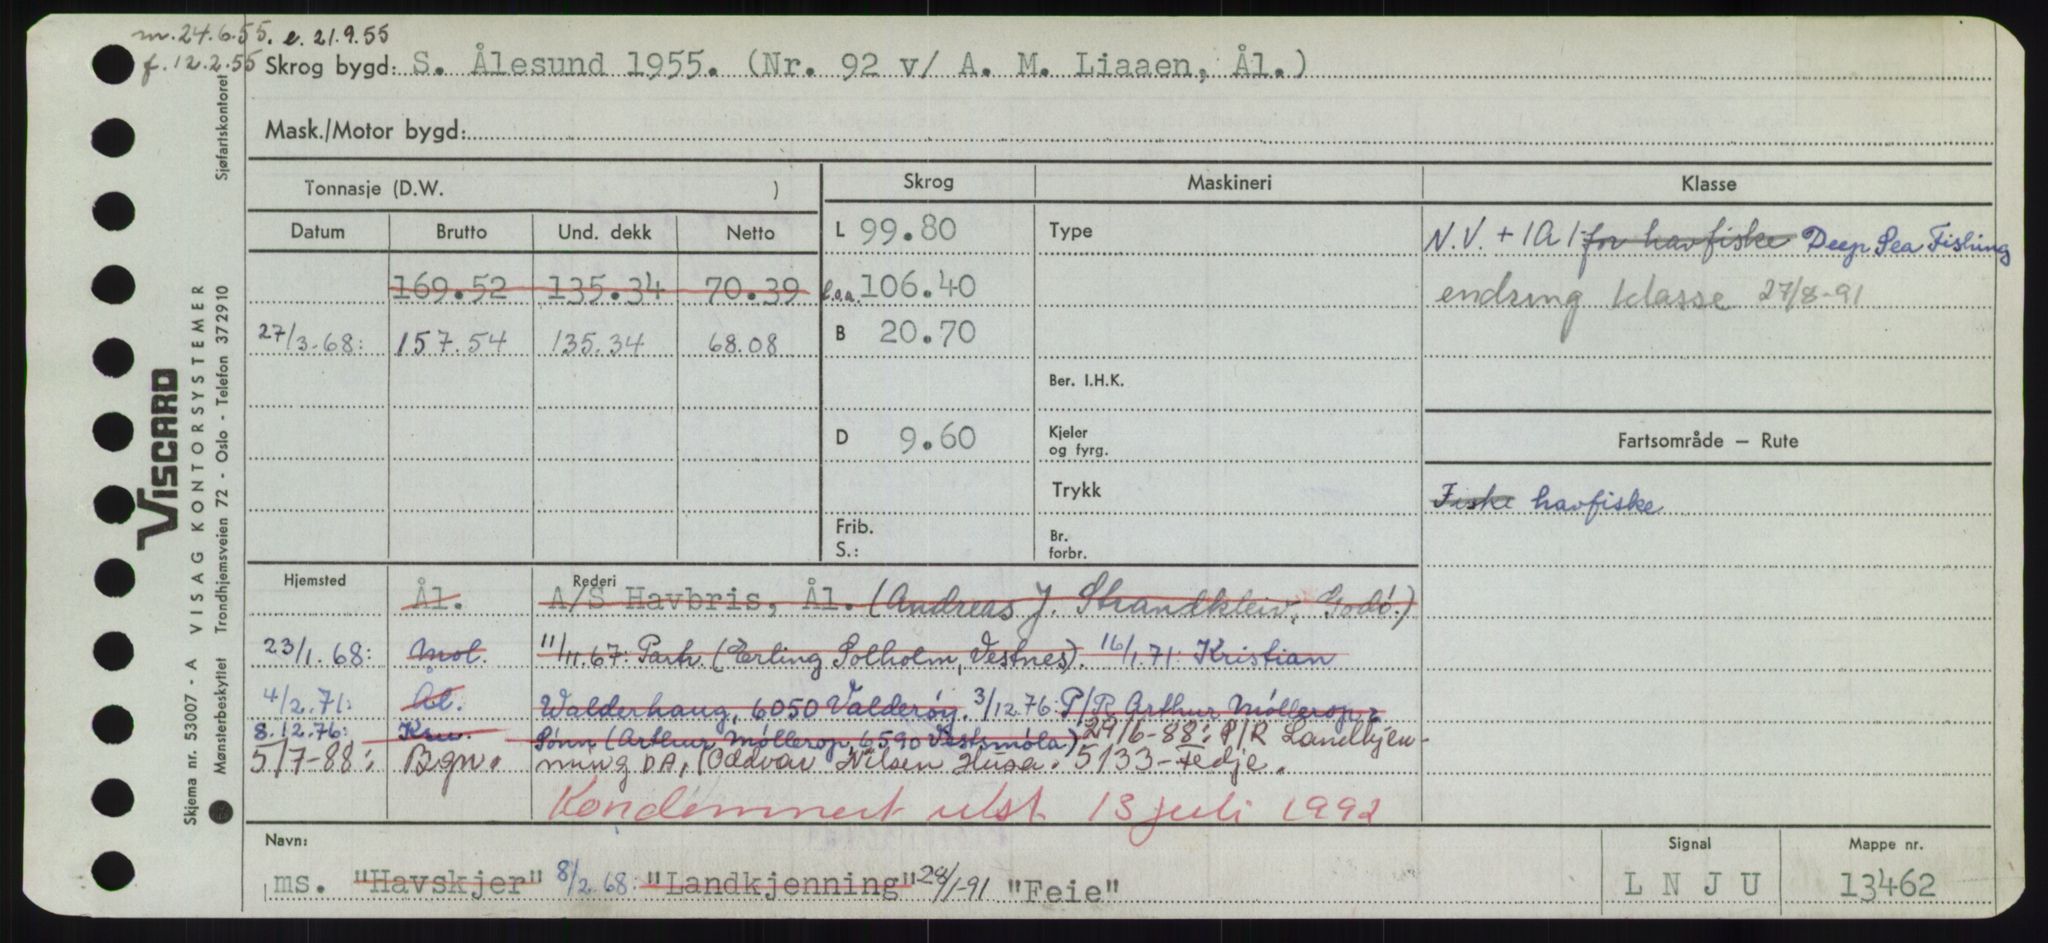 m. 24.6.55. e. 21.9.55
f. 12.2.55 Skrog bygd: S. Ålesund 1955. (Nr. 92 v/ A. M. Liaaen, Ål.)
Mask./Motor bygd:
Tonnasje (D.W. )
Skrog Maskineri Klasse
Datum Brutto Und. dekk Netto
L 99.80 Type N.V. + 1A1 for havfiske Deep Sea Fishing
169.52 135.34 70.39 l.o.a. 106.40 endring klasse 27/8-91
27/3.68: 157.54 135.34 68.08 B 20.70
Ber. I.H.K.
D 9.60 Kjeler
og fyrg.
Fartsområde — Rute
Trykk Fiske havfiske
Frib.
S.:
Br.
forbr.
Hjemsted Rederi
Ål. A/S Havbris, Ål. (Andreas J. Strandkleiv, Godø.)
23/1.68: Mol. 11/11.67: Partr. (Erling Solholm, Vestnes). 16/1.71: Kristian
4/2.71: Ål. Walderhaug, 6050 Valderøy. 3/12.76: P/R Arthur Møllerop &
8.12.76: Krsu. Sønn (Arthur Møllerop, 6590 Vestsmøla) 29/6-88: P/R Landkjen-
5/7-88: Bgn. ning DA, (Oddvar Nilsen Husa. 5133-Fedje.
Kondemnert utst 13 juli 1992
Navn: Signal Mappe nr.
ms. "Havskjer" 8/2.68: "Landkjenning" 28/1-91 "Feie" L N J U 13462
Skjema nr. 53007 - A VISAG KONTORSYSTEMER Sjøfartskontoret
Mønsterbeskyttet Trondhjemsveien 72 - Oslo - Telefon 37 29 10
VISCARD